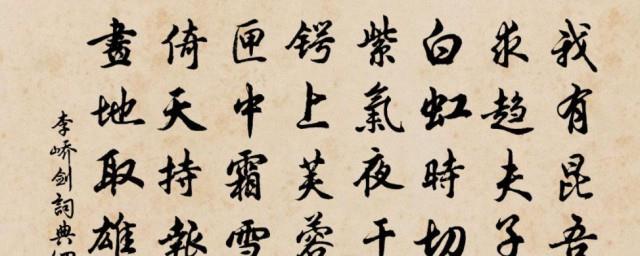 我有昆吾
求趋夫子
白虹時切
紫氣夜干
鍔上芙蓉
匣中霜雪
倚天持報
畫地取雄
李嶠劍詞典